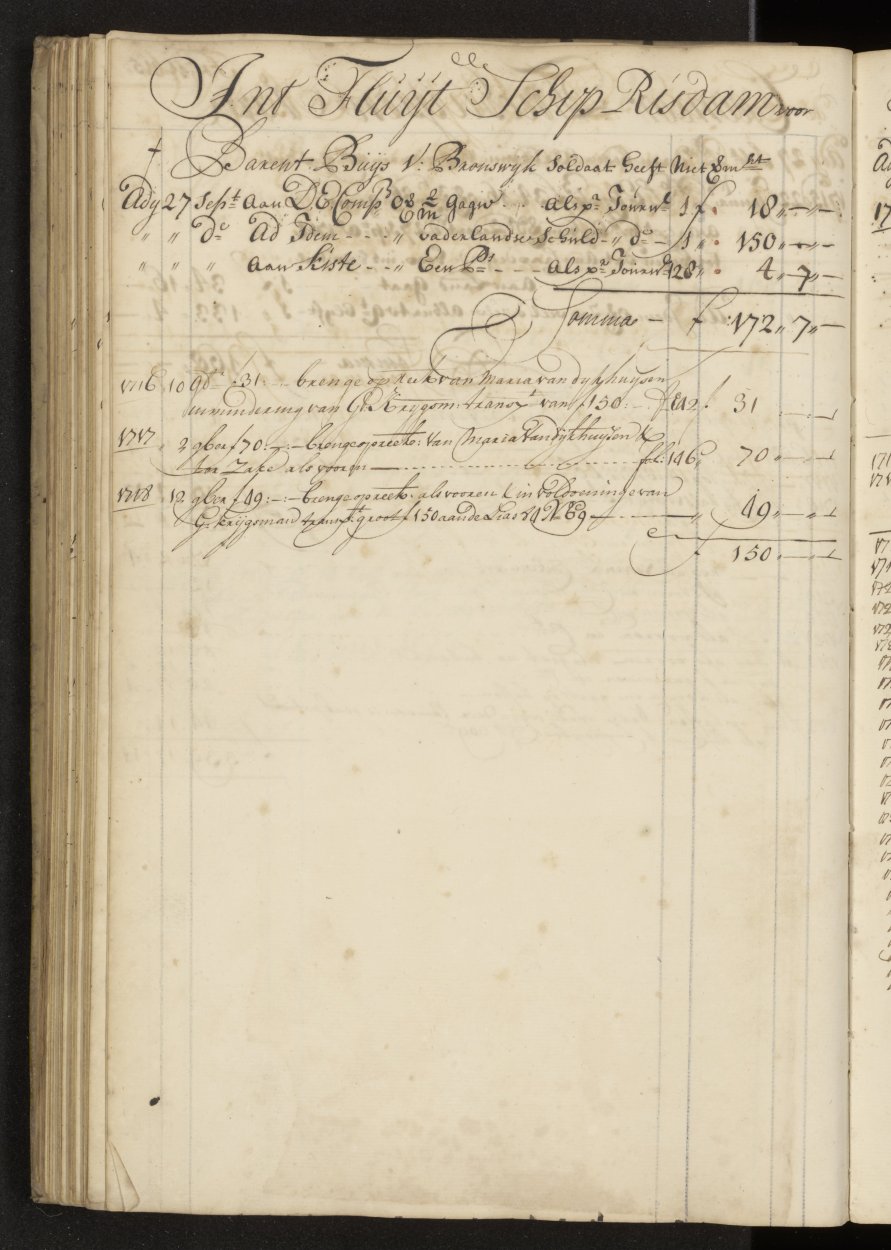 Int Fluijt Schip Risdam voor
† Barent Buijs V: Bronswijk Soldaat heeft Niet
Ady 27 Sept Aan D E Comp Over 2/m gagie Als pr Journl 1 f 18 " — " —
" " do Ad Idem " vaderlandse Schuld " do — 1 " 150 " — " —
" " " Aan Kiste " Een Ps Als pr Journl 128 " 4 " 7 " —
Somma — f 172 " 7 " —
1716 10 f 31: — brenge op reek van Maria van dykhuysen
in mindering van G: Krijgsm: transpt van f 150: — 31 — —
1717 2 9ber f 70: — brenge op reek: van Maria van dijkhuijsen
ter Zake als vooren — fol: 146 " 70 " — " —
1718 12 9ber f 49: — : — brenge op reek: als vooren in voldoeninge van
G: Krijgsman transpt groot f 150 aan de Lias 49 " — " —
f 150 " — " —